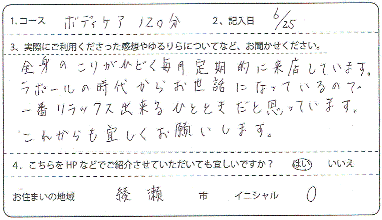 1.コース ボディケア 120分 2、記入日 6/25
3、実際にご利用くださった感想やゆるりらについてなど、お聞かせください。
全身のこりがひどく毎月定期的に来店しています。
ラポールの時代からお世話になっているので、
一番リラックス出来るひとときだと思っています。
これからも宜しくお願いします。
4．こちらをHPなどでご紹介させていただいても宜しいですか？ はい いいえ
お住まいの地域 綾瀬 市 イニシャル O